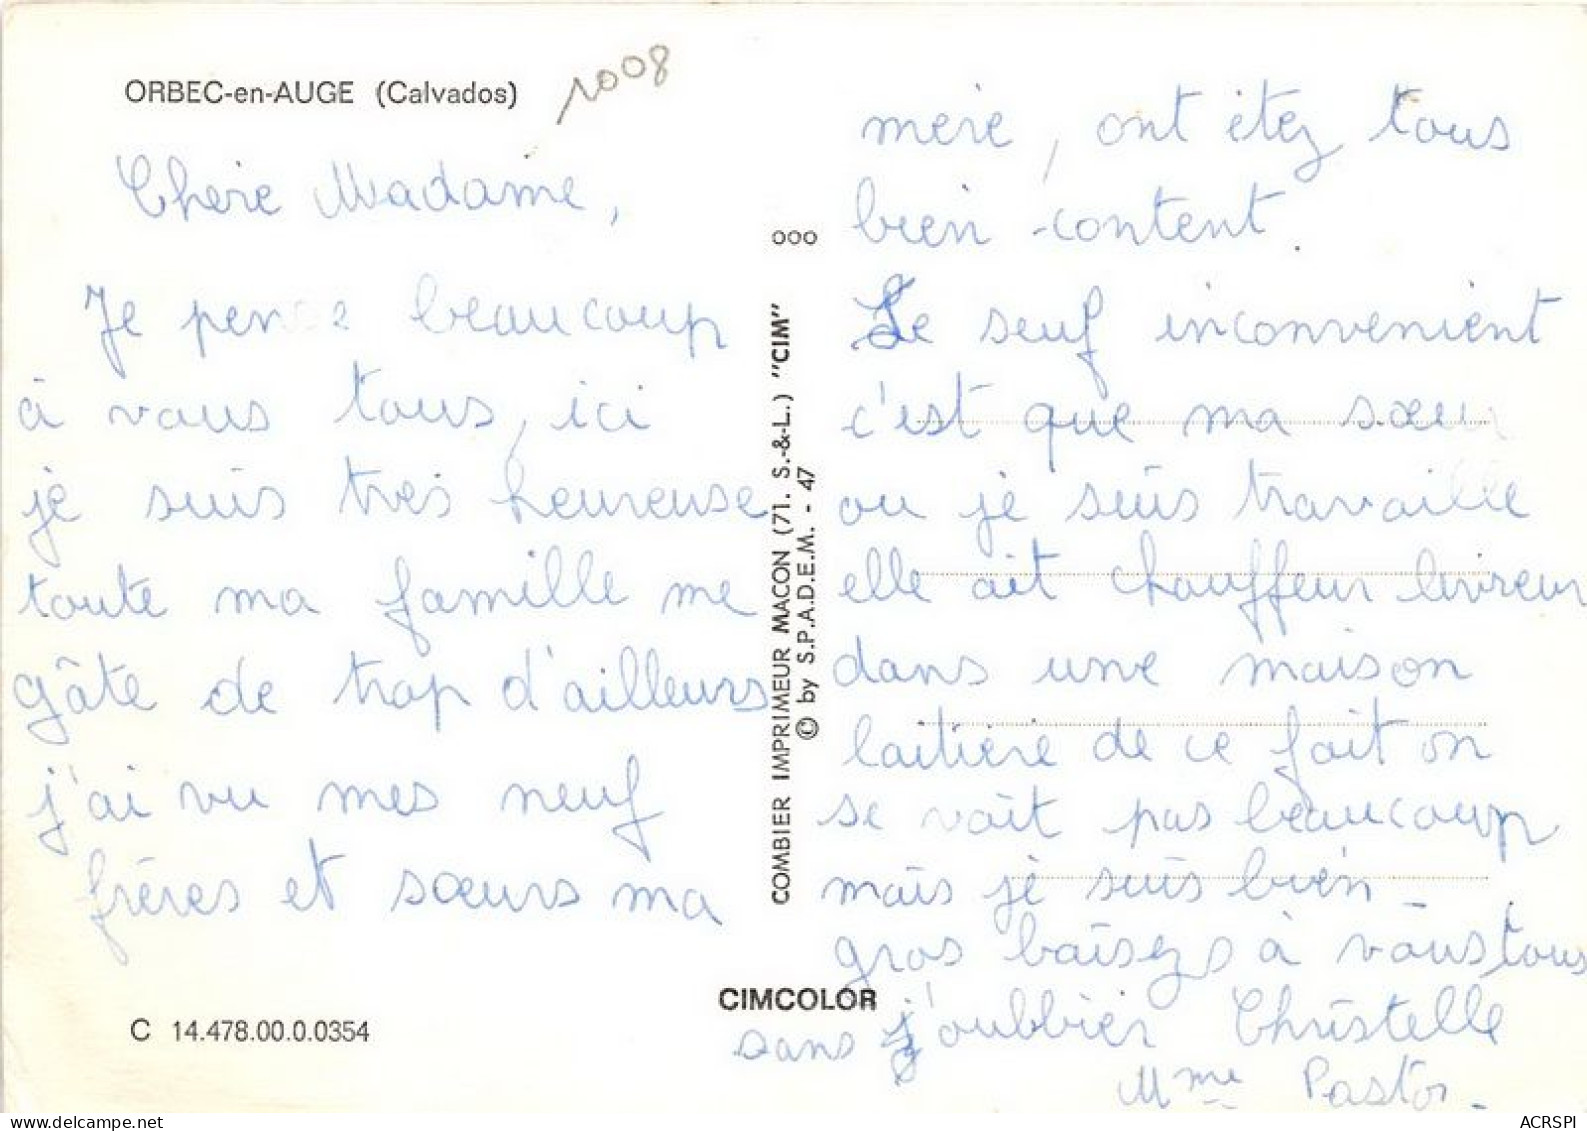 ORBEC-en-AUGE (Calvados)
1008
Chère Madame,
Je pense beaucoup
à vous tous, ici
je suis très heureuse
toute ma famille me
gâte de trop d'ailleurs
j'ai vu mes neuf
frères et sœurs ma
C 14.478.00.0.0354
COMBIER IMPRIMEUR MACON (71. S.-&-L.) "CIM"
© by S.P.A.D.E.M. - 47
CIMCOLOR
mère, ont étez tous
bien content.
Le seuf inconvenient
c'est que ma sœur
ou je suis travaille
elle ait chauffeur livreur
dans une maison
laitière de ce fait on
se voit pas beaucoup
mais je suis bien.
gros baisezs à vous tous
sans j'oubbier Christelle
Mme Pastor.
ACRSPI